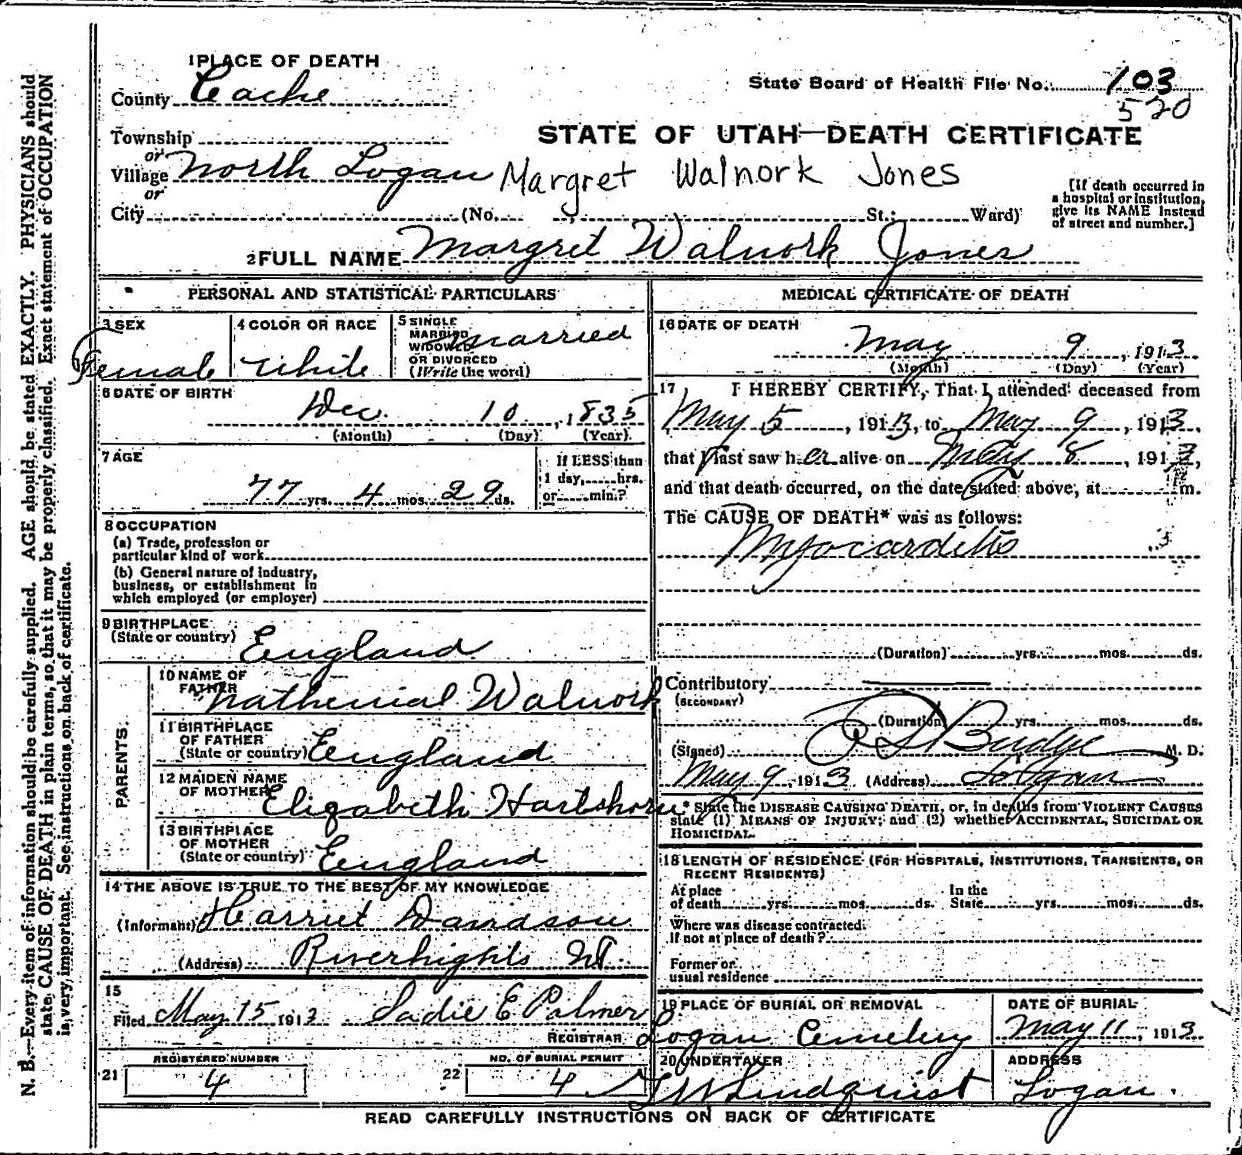 N. B.—Every item of information should be carefully supplied. AGE should be stated EXACTLY. PHYSICIANS should
state CAUSE OF DEATH in plain terms, so that it may be properly classified. Exact statement of OCCUPATION
is very important. See instructions on back of certificate.
1 PLACE OF DEATH
County Cache
State Board of Health File No. 103
520
Township
or
Village North Logan
or
City (No. St.; Ward)
STATE OF UTAH—DEATH CERTIFICATE
Margret Walnork Jones
[If death occurred in
a hospital or institution,
give its NAME instead
of street and number.]
2 FULL NAME Margret Walnork Jones
PERSONAL AND STATISTICAL PARTICULARS
3 SEX
Female
4 COLOR OR RACE
White
5 SINGLE
MARRIED
WIDOWED
OR DIVORCED
(Write the word)
Married
6 DATE OF BIRTH
Dec. 10, 1835
(Month) (Day) (Year)
7 AGE
77 yrs. 4 mos. 29 ds.
If LESS than
1 day, hrs.
or min.?
8 OCCUPATION
(a) Trade, profession or
particular kind of work
(b) General nature of industry,
business, or establishment in
which employed (or employer)
9 BIRTHPLACE
(State or country) England
PARENTS
10 NAME OF
FATHER Nathenial Walnork
11 BIRTHPLACE
OF FATHER
(State or country) England
12 MAIDEN NAME
OF MOTHER Elizabeth Hartshorn
13 BIRTHPLACE
OF MOTHER
(State or country) England
14 THE ABOVE IS TRUE TO THE BEST OF MY KNOWLEDGE
(Informant) Harriet Davidson
(Address) Riverhights Ut.
15
Filed May 15 1913 Sadie E Palmer
REGISTRAR
REGISTERED NUMBER
21 4
NO. OF BURIAL PERMIT
22 4
MEDICAL CERTIFICATE OF DEATH
16 DATE OF DEATH
May 9, 1913
(Month) (Day) (Year)
17 I HEREBY CERTIFY, That I attended deceased from
May 5, 1913, to May 9, 1913,
that I last saw her alive on May 8, 1913,
and that death occurred, on the date stated above, at m.
The CAUSE OF DEATH* was as follows:
Myocarditis
(Duration) yrs. mos. ds.
Contributory
(SECONDARY)
(Duration) yrs. mos. ds.
(Signed) Budge M. D.
May 9, 1913 (Address) Logan
* State the DISEASE CAUSING DEATH, or, in deaths from VIOLENT CAUSES
state (1) MEANS OF INJURY; and (2) whether ACCIDENTAL, SUICIDAL OR
HOMICIDAL.
18 LENGTH OF RESIDENCE (FOR HOSPITALS, INSTITUTIONS, TRANSIENTS, OR
RECENT RESIDENTS)
At place
of death yrs. mos. ds.
In the
State yrs. mos. ds.
Where was disease contracted,
If not at place of death?
Former or
usual residence
19 PLACE OF BURIAL OR REMOVAL
Logan Cemetery
DATE OF BURIAL
May 11, 1913
20 UNDERTAKER
Lundquist
ADDRESS
Logan.
READ CAREFULLY INSTRUCTIONS ON BACK OF CERTIFICATE